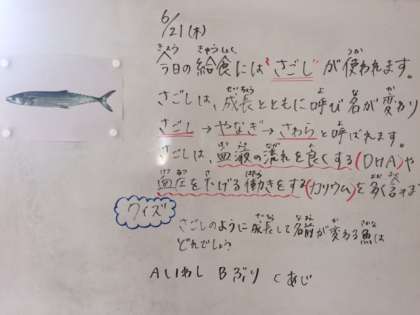 6/21(木)
今日の給食には"さごし"が使われます。
さごしは、成長とともに呼び名が変わり
さごし→やなぎ→さわらと呼ばれます。
さごしは、血液の流れを良くする(DHA)や
血圧を下げる働きをする(カリウム)を多く含ま
クイズ
さごしのように成長して名前が変わる魚は
どれでしょう?
Aいわし Bぶり Cあじ